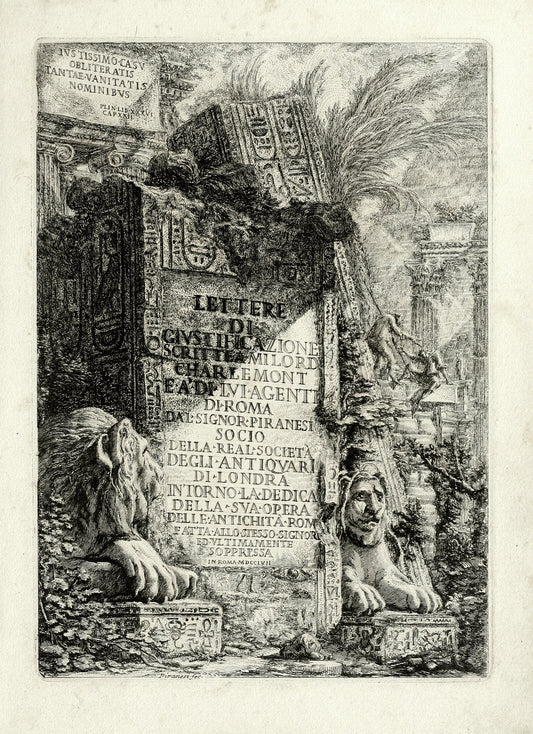 IVSTISSIMO·CASV
OBLITERATIS
TANTAE·VANITATIS
NOMINIBVS
PLIN·LIB·XXXVI
CAP·XII
LETTERE
DI
GIVSTIFICAZIONE
SCRITTE·A·MILORD
CHARLEMONT
E·A·DI·LVI·AGENTI
DI·ROMA
DAL·SIGNOR·PIRANESI
SOCIO
DELLA·REAL·SOCIETÀ
DEGLI·ANTIQVARI
DI·LONDRA
INTORNO·LA·DEDICA
DELLA·SVA·OPERA
DELLE·ANTICHITÀ·ROM
FATTA·ALLO·STESSO·SIGNOR
ED·VLTIMAMENTE
SOPPRESSA
IN·ROMA·MDCCLVII
Piranesi fec